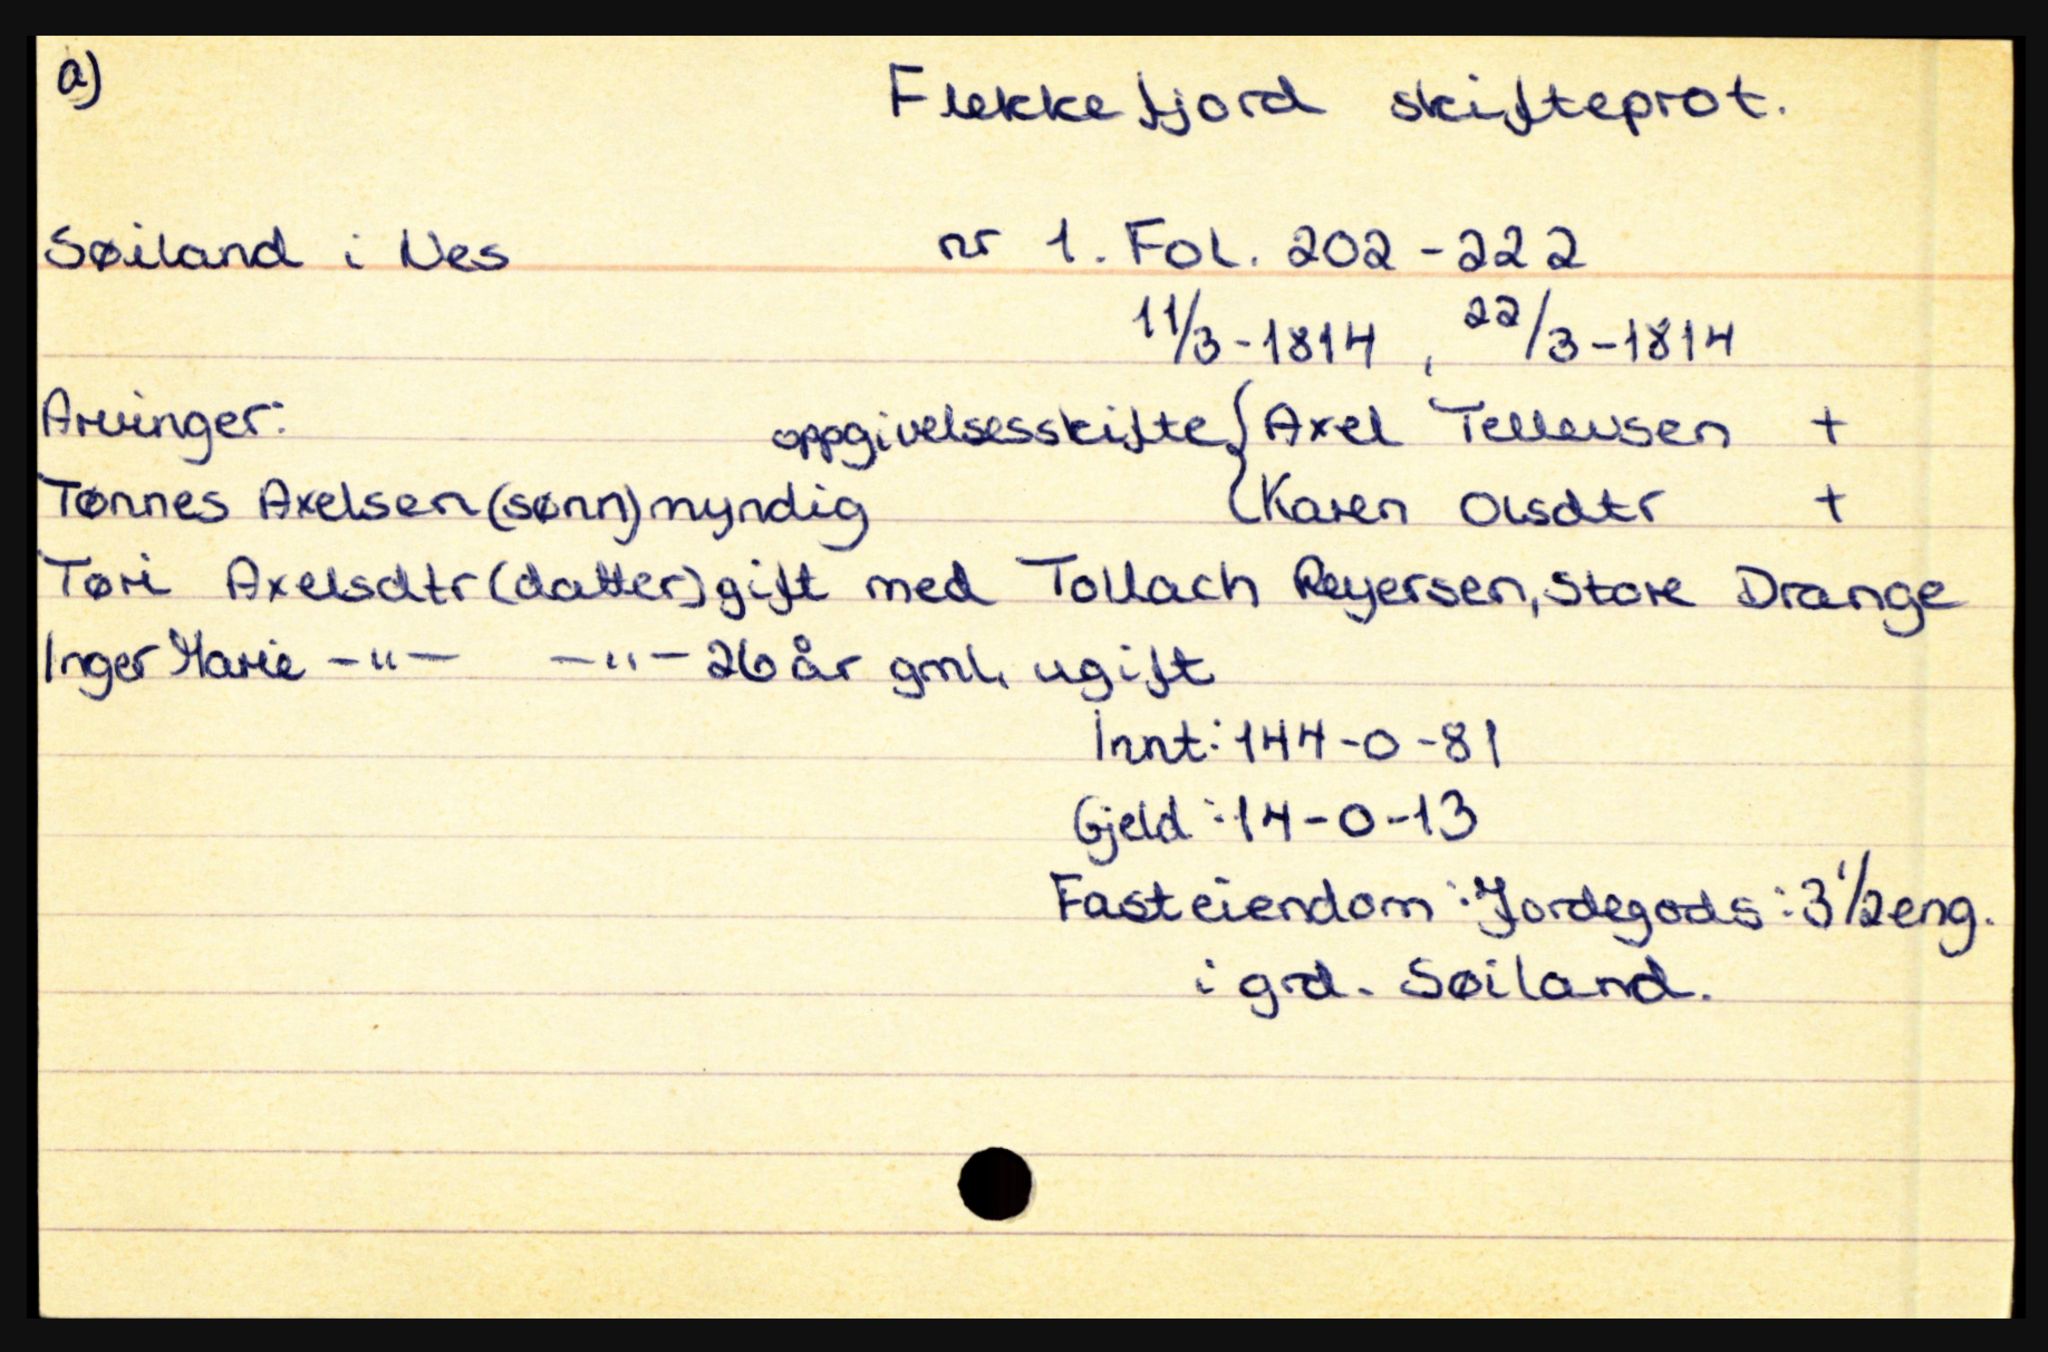 a)
Flekkefjord skifteprot.
Søiland i Nes nr 1. Fol. 202-222
11/3-1814, 22/3-1814
Arvinger: oppgivelsesskifte { Axel Tellevsen +
Tønnes Axelsen (sønn) myndig { Karen Olsdtr +
Tøri Axelsdtr (datter) gift med Tollach Reyersen, Store Drange
Inger Marie -"- -"- 26 år gml. ugift
Innt: 144-0-81
Gjeld: 14-0-13
Fasteiendom: Jordegods: 3 1/2 eng.
i grd. Søiland.